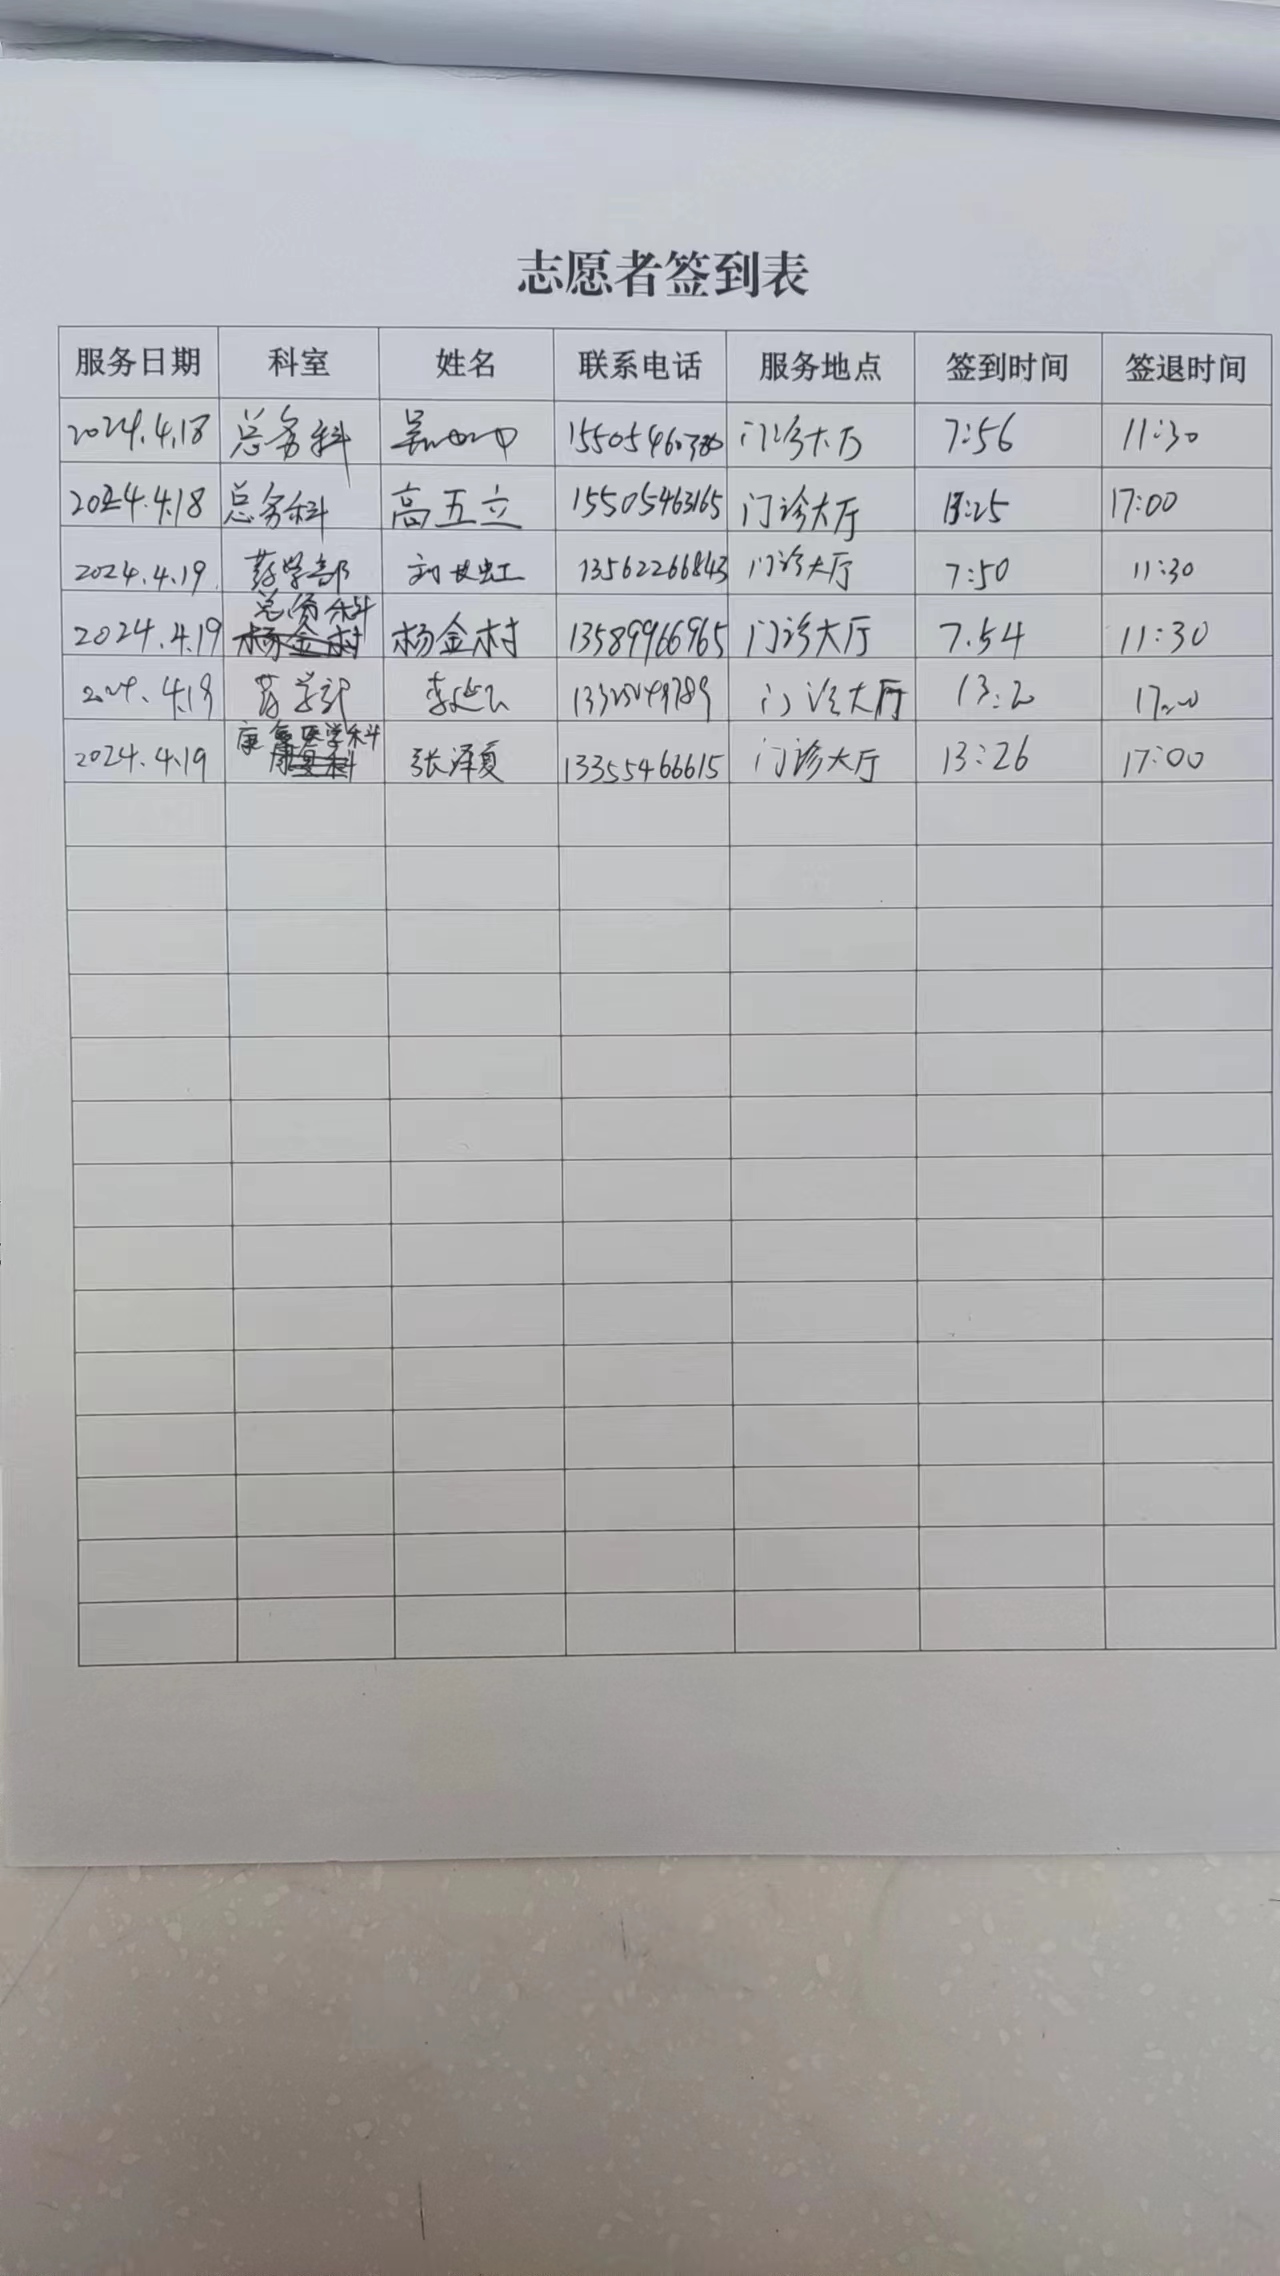 志愿者签到表
服务日期 科室 姓名 联系电话 服务地点 签到时间 签退时间
2024.4.18 总务科 门诊大厅 7:56 11:30
2024.4.18 总务科 高五立 15505463165 门诊大厅 13:25 17:00
2024.4.19 药学部 13562266843 门诊大厅 7:50 11:30
2024.4.19 总务科 杨金村 杨金村 13589966965 门诊大厅 7.54 11:30
2024.4.19 药学部 门诊大厅
2024.4.19 康复医学科 张泽夏 13355466615 门诊大厅 13:26 17:00